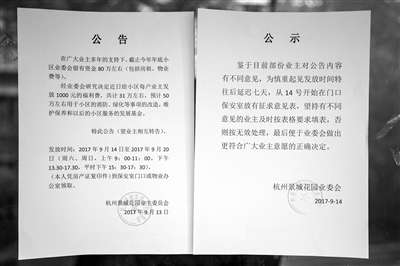 公 告
在广大业主多年的支持下,截止今年年底小
区业委会留有资金 80 万左右(包括房租、物业
费等)。
经业委会研究决定近日给小区每户业主发
放 1000 元的福利费,共计 31 万左右,预计 50
万左右用于小区的消防、绿化等事项的改造,维
护保养和以后的小区服务的发展基金。
特此公告(望业主相互转告)。
发放时间:2017 年 9 月 14 日至 2017 年 9 月 20
日(周六、周日,上午 9:00-11:00,下午
13.30-17.30,平时下午 15:30-17:30)。
(本人凭房产证复印件)到保安室门口或物业办
公室领取。
杭州景城花园业主委员会
2017 年 9 月 13 日
公 示
鉴于目前部份业主对公告内容
有不同意见,为慎重起见发放时间特
往后延迟七天,从 14 号开始在门口
保安室放有征求意见表,望持有不同
意见的业主及时按表格要求填表,否
则按无效处理,最后便于业委会做出
更符合广大业主意愿的正确决定。
杭州景城花园业委会
2017-9-14